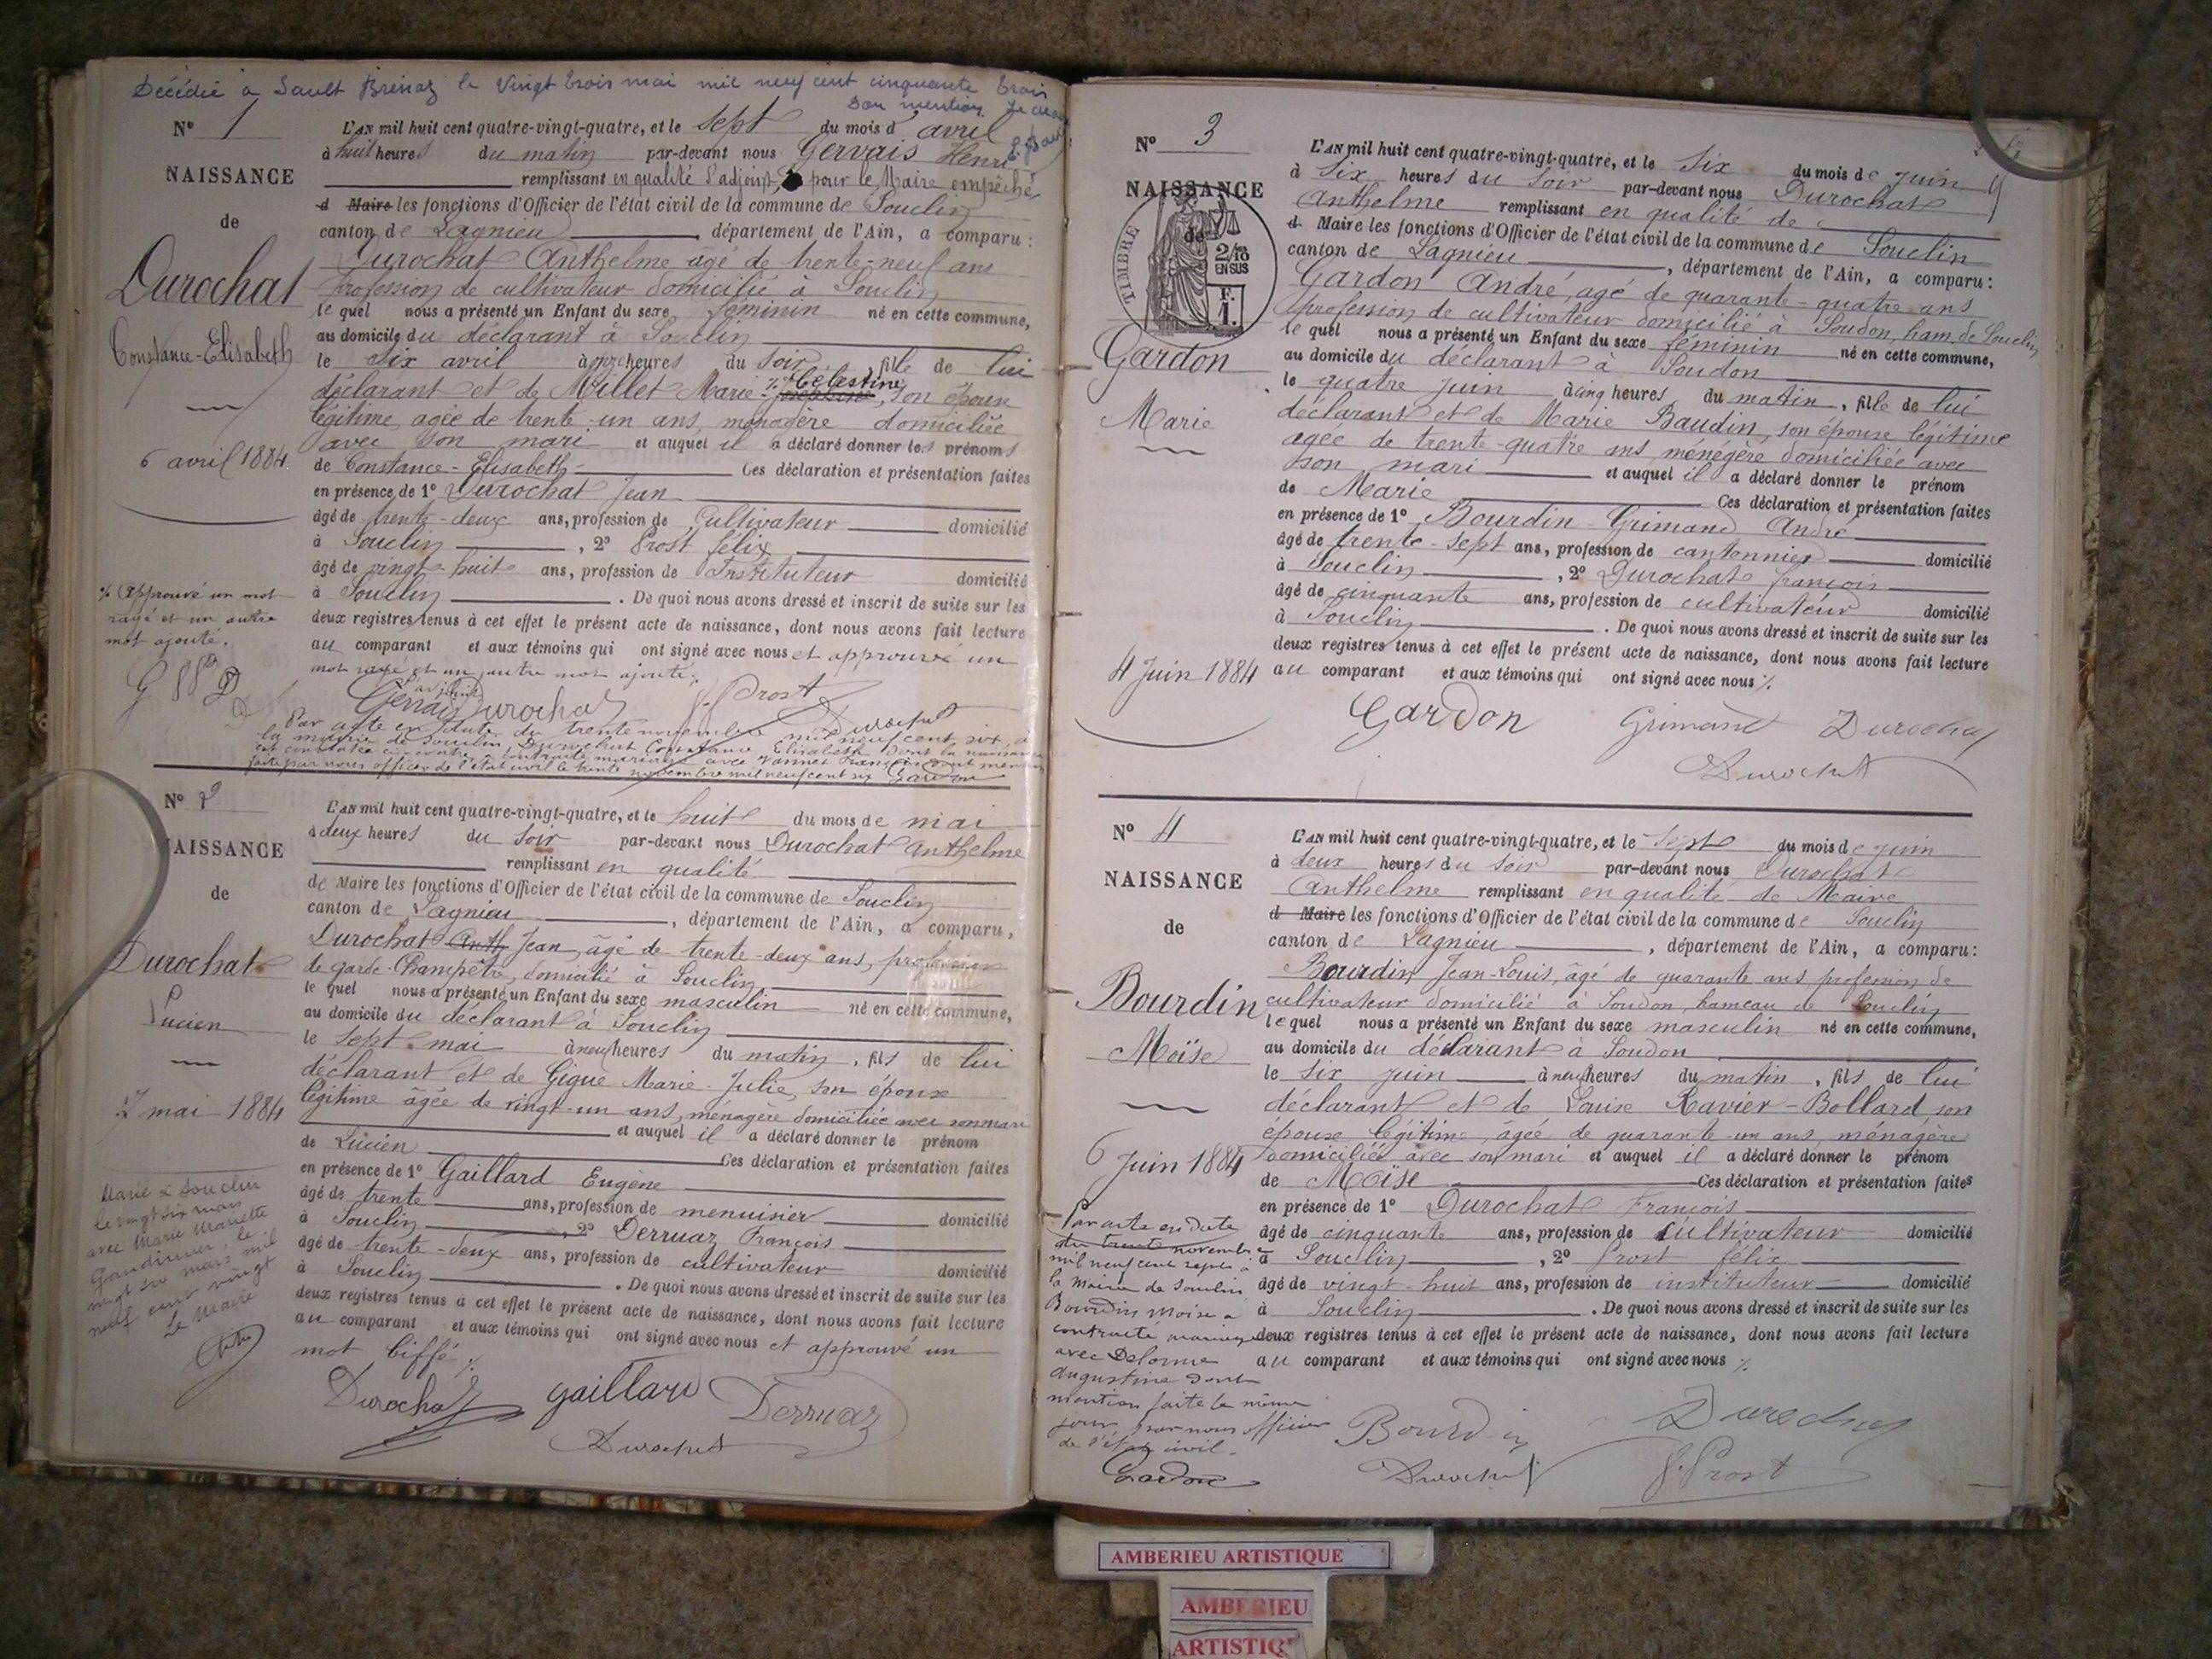 Décédée à Sault Brénaz le Vingt trois mai mil neuf cent cinquante trois
Dont mention
N° 1
NAISSANCE
de
Durochat
Constance-Elisabeth
6 avril 1884
% Approuvé un mot
rayé et un autre
mot ajouté.
L'AN mil huit cent quatre-vingt-quatre, et le sept du mois d'avril
à huit heures du matin par-devant nous Gervais Henri
remplissant en qualité d'adjoint, pour le Maire empêché
d Maire les fonctions d'Officier de l'état civil de la commune de Souclin
canton de Lagnieu, département de l'Ain, a comparu :
Durochat Anthelme âgé de trente-neuf ans
profession de cultivateur domicilié à Souclin
le quel nous a présenté un Enfant du sexe féminin né en cette commune,
au domicile du déclarant à Souclin
le six avril à onze heures du soir, fille de lui
déclarant et de Millet Marie % Célestine, son épouse
légitime, agée de trente-un ans, ménagère domiciliée
avec son mari et auquel il a déclaré donner les prénoms
de Constance-Elisabeth Ces déclaration et présentation faites
en présence de 1° Durochat Jean
âgé de trente-deux ans, profession de Cultivateur domicilié
à Souclin, 2° Prost félix
âgé de vingt-huit ans, profession de Instituteur domicilié
à Souclin. De quoi nous avons dressé et inscrit de suite sur les
deux registres tenus à cet effet le présent acte de naissance, dont nous avons fait lecture
au comparant et aux témoins qui ont signé avec nous et approuvé un
mot rayé et un autre mot ajouté.
adjoint
Gervais Durochat F. Prost
Durochat
Par acte en date du trente novembre mil neuf cent six à
la mairie de Souclin, Durochat Constance Elisabeth dont la naissance
est constatée ci-contre, a contracté mariage avec Vannet François dont mention
faite par nous officier de l'état civil le trente novembre mil neuf cent six Gardon
N° 2
NAISSANCE
de
Durochat
Lucien
7 mai 1884
Marié à Souclin
le vingt six mars
avec Marie Mariette
Gaudinier, le
vingt six mars mil
neuf cent vingt
Le Maire
L'AN mil huit cent quatre-vingt-quatre, et le huit du mois de mai
à deux heures du soir par-devant nous Durochat Anthelme
remplissant en qualité
de Maire les fonctions d'Officier de l'état civil de la commune de Souclin
canton de Lagnieu, département de l'Ain, a comparu,
Durochat Anth Jean, âgé de trente-deux ans, profession
de garde-Champêtre, domicilié à Souclin
le quel nous a présenté un Enfant du sexe masculin né en cette commune,
au domicile du déclarant à Souclin
le sept mai à neuf heures du matin, fils de lui
déclarant et de Gigue Marie-Julie, son épouse
légitime âgée de vingt-un ans, ménagère domiciliée avec son mari
et auquel il a déclaré donner le prénom
de Lucien Ces déclaration et présentation faites
en présence de 1° Gaillard Eugène
âgé de trente ans, profession de menuisier domicilié
à Souclin, 2° Derruaz François
âgé de trente-deux ans, profession de cultivateur domicilié
à Souclin. De quoi nous avons dressé et inscrit de suite sur les
deux registres tenus à cet effet le présent acte de naissance, dont nous avons fait lecture
au comparant et aux témoins qui ont signé avec nous et approuvé un
mot biffé %
Durochat gaillard Derruaz
Durochat
N° 3
NAISSANCE
de
TIMBRE
2/10
EN SUS
F.
1.
Gardon
Marie
4 Juin 1884
L'AN mil huit cent quatre-vingt-quatre, et le six du mois de juin
à six heures du soir par-devant nous Durochat
Anthelme remplissant en qualité de
d. Maire les fonctions d'Officier de l'état civil de la commune de Souclin
canton de Lagnieu, département de l'Ain, a comparu :
Gardon André, agé de quarante-quatre ans
profession de cultivateur domicilié à Soudon, ham. de Souclin
le quel nous a présenté un Enfant du sexe féminin né en cette commune,
au domicile du déclarant à Soudon
le quatre juin à cinq heures du matin, fille de lui
déclarant et de Marie Baudin, son épouse légitime
agée de trente-quatre ans, ménégère domiciliée avec
son mari et auquel il a déclaré donner le prénom
de Marie Ces déclaration et présentation faites
en présence de 1° Bourdin-Grimand André
âgé de trente-sept ans, profession de cantonnier domicilié
à Souclin, 2° Durochat françois
âgé de cinquante ans, profession de cultivateur domicilié
à Souclin. De quoi nous avons dressé et inscrit de suite sur les
deux registres tenus à cet effet le présent acte de naissance, dont nous avons fait lecture
au comparant et aux témoins qui ont signé avec nous %
Gardon Grimand Durochat
Durochat
N° 4
NAISSANCE
de
Bourdin
Moïse
6 Juin 1884
Par acte en date
du trente novembre
mil neuf cent sept à
la Mairie de Souclin
Bourdin Moïse a
contracté mariage
avec Delorme
Augustine dont
mention faite le même
jour par nous officier
de l'état civil.
Gardon
L'AN mil huit cent quatre-vingt-quatre, et le sept du mois de juin
à deux heures du soir par-devant nous Durochat
Anthelme remplissant en qualité de Maire
d Maire les fonctions d'Officier de l'état civil de la commune de Souclin
canton de Lagnieu, département de l'Ain, a comparu :
Bourdin Jean-Louis, âgé de quarante ans profession de
cultivateur domicilié à Soudon, hameau de Souclin
lequel nous a présenté un Enfant du sexe masculin né en cette commune,
au domicile du déclarant à Soudon
le six juin à neuf heures du matin, fils de lui
déclarant et de Louise Ravier-Bollard son
épouse légitime, âgée de quarante-un ans, ménagère
domiciliée avec son mari et auquel il a déclaré donner le prénom
de Moïse Ces déclaration et présentation faites
en présence de 1° Durochat François
âgé de cinquante ans, profession de Cultivateur domicilié
à Souclin, 2° Prost félix
âgé de vingt-huit ans, profession de instituteur domicilié
à Souclin. De quoi nous avons dressé et inscrit de suite sur les
deux registres tenus à cet effet le présent acte de naissance, dont nous avons fait lecture
au comparant et aux témoins qui ont signé avec nous %
Bourdin Durochat
Durochat F. Prost
AMBERIEU ARTISTIQUE
AMBERIEU
ARTISTIQ